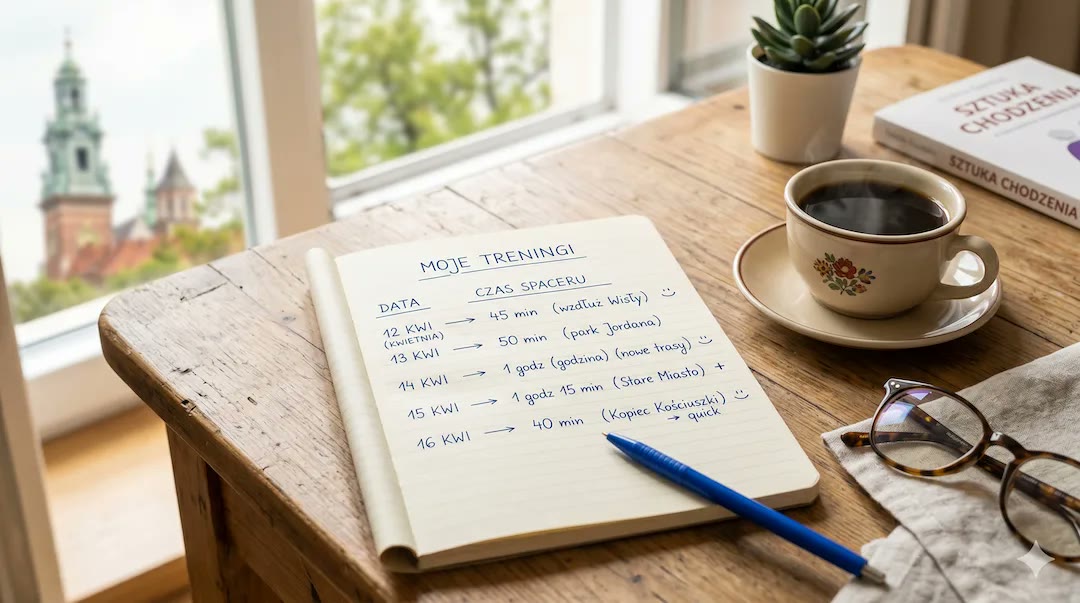 MOJE TRENINGI
DATA CZAS SPACERU
12 KWI → 45 min (wzdłuż Wisły) :)
(KWIETNIA)
13 KWI → 50 min (park Jordana)
14 KWI → 1 godz (godzina) (nowe trasy) :)
15 KWI → 1 godz 15 min (Stare Miasto) +
16 KWI → 40 min (Kopiec Kościuszki) :)
→ quick
SZTUKA
CHODZENIA
SZTUKA CHODZENIA